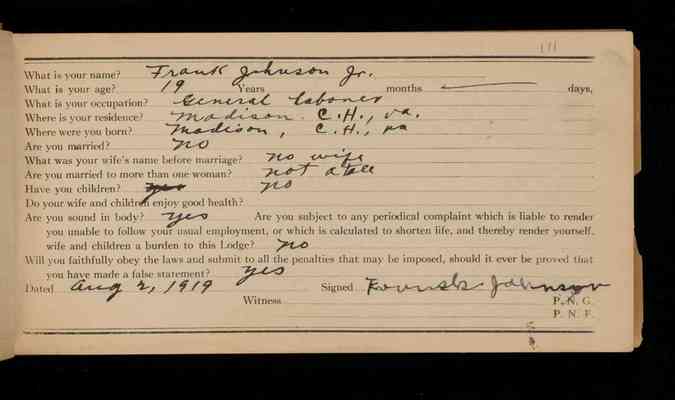 111
What is your name? Frank Johnson Jr.
What is your age? 19 Years months days,
What is your occupation? General laborer
Where is your residence? Madison. C.H., va.
Where were you born? Madison, C.H., va
Are you married? no
What was your wife's name before marriage? no wife
Are you married to more than one woman? not atall
Have you children? yes no
Do your wife and children enjoy good health?
Are you sound in body? yes Are you subject to any periodical complaint which is liable to render
you unable to follow your usual employment, or which is calculated to shorten life, and thereby render yourself,
wife and children a burden to this Lodge? no
Will you faithfully obey the laws and submit to all the penalties that may be imposed, should it ever be proved that
you have made a false statement? yes
Dated Aug 2, 1919 Signed Johnson
Witness P. N. G.
P. N. F.